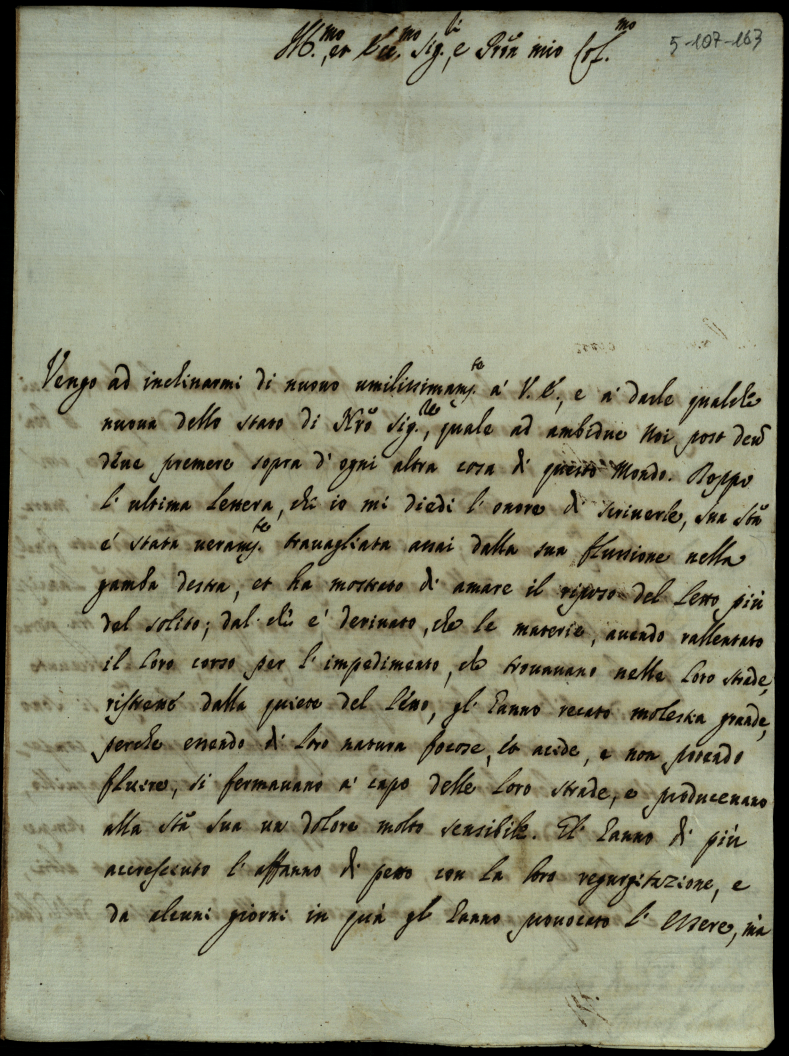 Ill.mo, et Ecc.mo Sig.re, e Prōn mio Col.mo
5-107-163
Vengo ad inclinarmi di nuovo umilissimam.te à V. E., e à darle qualche
nuova dello stato di Nrõ Sig.re, quale ad ambidue Noi post Deũ
deve premere sopra d' ogni altra cosa di questo Mondo. Doppo
l' ultima lettera, che io mi diedi l' onore di scriverle, sua Stà
è stata veram.te travagliata assai dalla sua flussione nella
gamba destra, et ha mostrato di amare il riposo del letto più
del solito; dal che è derivato, che le materie, avendo rallentato
il loro corso per l' impedimento, che trovavano nelle loro strade,
dalla quiete del letto, gl' hanno recato molestia grande,
perche essendo di loro natura focose, et acide, e non potendo
fluire, si fermavano à capo delle loro strade, e producevano
alla Stà Sua un dolore molto sensibile. Gl' hanno di più
accresciuto l' affanno di petto con la loro regurgitazione, e
da alcuni giorni in quà gl' hanno provocato l'